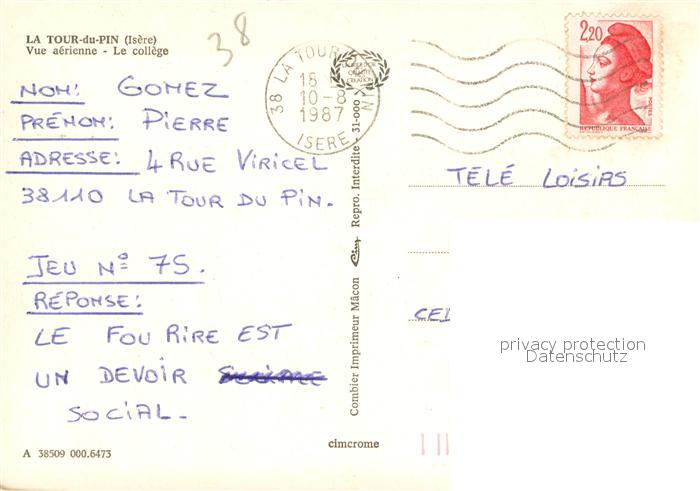 LA TOUR-du-PIN (Isère)
Vue aérienne - Le collège
38
NOM: GOMEZ
PRÉNOM: PIERRE
ADRESSE: 4 RUE VIRICEL
38110 LA TOUR DU PIN.
JEU N° 75.
RÉPONSE:
LE FOU RIRE EST
UN DEVOIR
SOCIAL.
A 38509 000.6473
38 LA TOUR PIN
18
10-8
1987
ISERE
Combier Imprimeur Mâcon Cim Repro. Interdite - 31-000
cimcrome
2,20
REPUBLIQUE FRANÇAISE
TELÉ LOISIRS
CED
privacy protection
Datenschutz